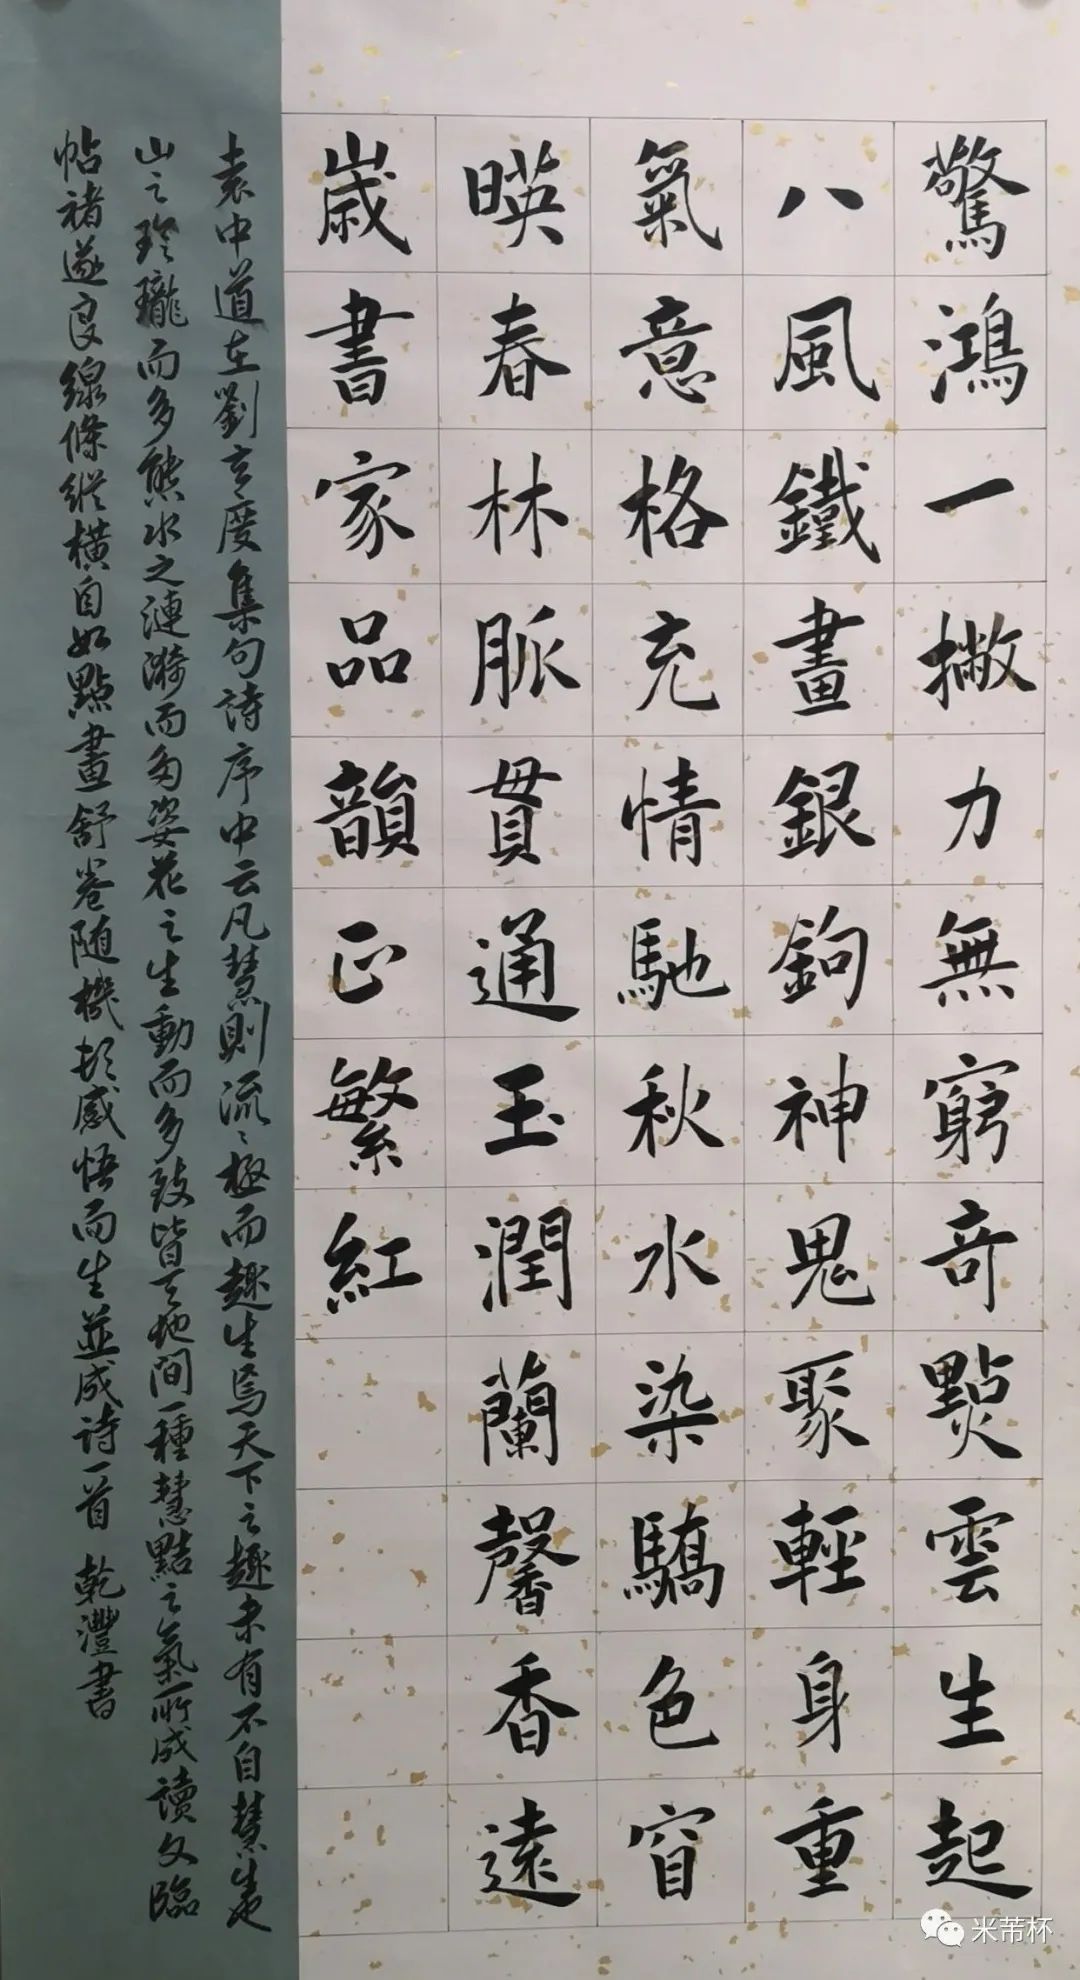 驚鴻一撇力無窮奇點雲生起
八風鐵畫銀鉤神鬼聚輕身重
氣意格充情馳秋水染驕色窅
暎春林脈貫通玉潤蘭馨香遠
歲書家品韻正繁紅
袁中道在劉玄度集句詩序中云凡慧則流流極而趣生焉天下之趣未有不自慧生也
山之玲瓏而多態水之漣漪而多姿花之生動而多致皆天地間一種慧黠之氣所成讀文臨
帖褚遂良線條縱橫自如點畫舒卷隨機頓感悟而生並成詩一首 乾灃書
米芾杯